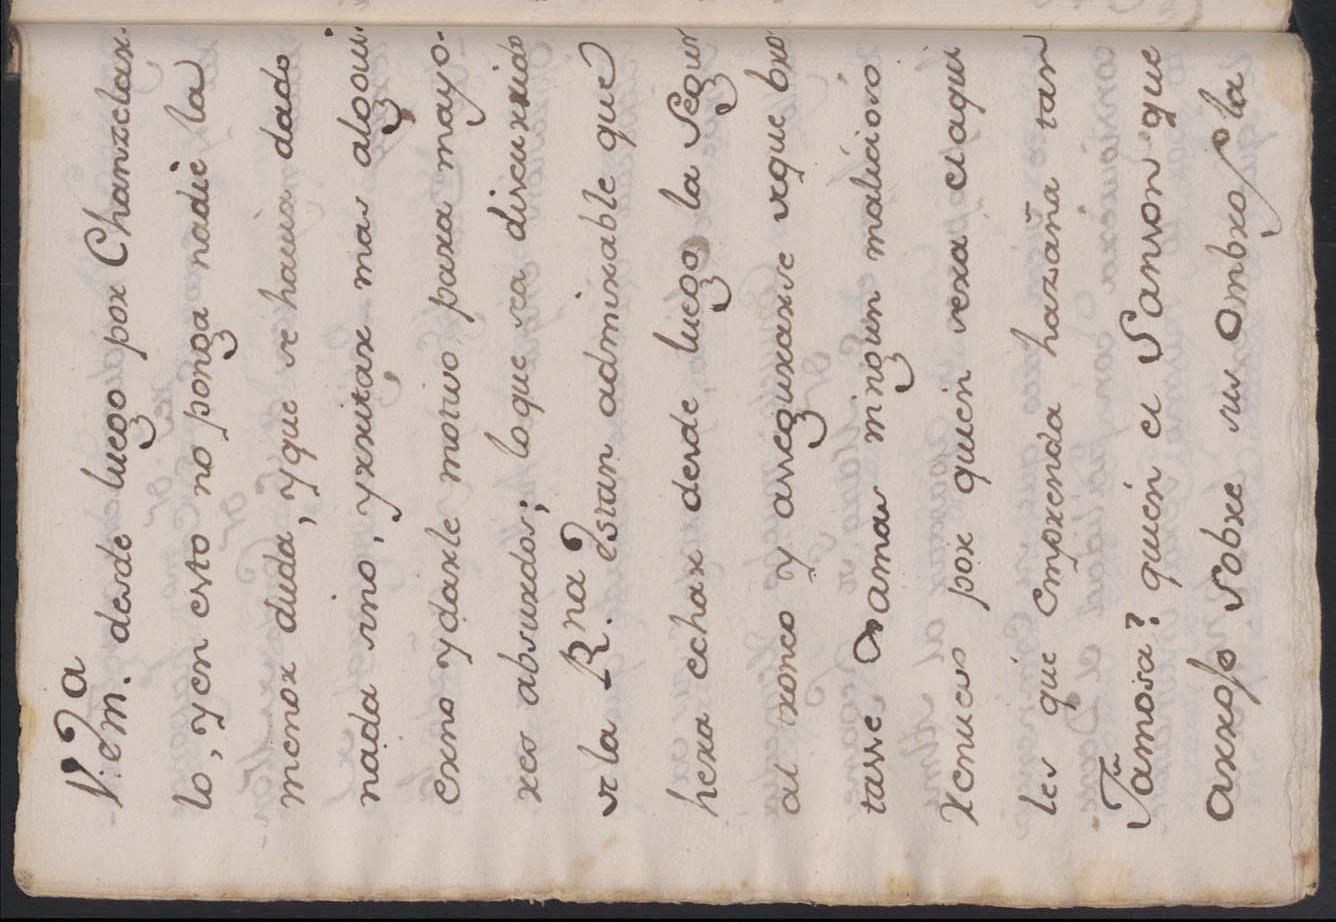 Vm.ª desde luego por Chanzelar-
lo, y en esto no ponga nadie la
menor duda, y que se hauia dado
nada sino, yrritar mas aloqui-
erno y darle motiuo para mayo-
res absurdos; lo que sea discurrido
es la Rna. es tan admirable que
hera echar desde luego la Segur
al tronco y assegurarse deque bro
tasse Ramas ningun malicioso
Renueuo por quien sera el aqui
les que emprenda hazaña tan
Famosa? quien el Sanson que
arroje sobre sus ombros la